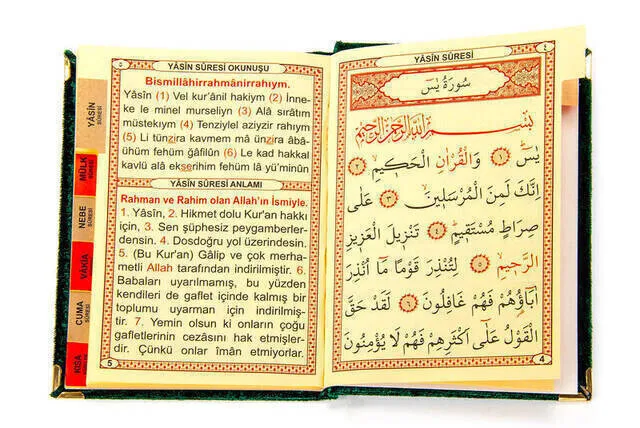 YÂSİN
SÛRESİ
MÜLK
SÛRESİ
NEBE
SÛRESİ
VAKIA
CUMA
SÛRESİ
KISA
٥
YÂSİN SÛRESİ OKUNUŞU
Bismillâhirrahmânirrahıym.
Yâsîn (1) Vel kur'ânil hakiym (2) İnne-
ke le minel murseliyn (3) Alâ sırâtım
müstekıym (4) Tenziylel aziyzir rahıym
(5) Li tünzira kavmem mâ ünzira âbâ-
ühüm fehüm ğâfilûn (6) Le kad hakkal
kavlü alâ ekserihim fehüm lâ yü'minûn
YÂSİN SÛRESİ ANLAMI
Rahman ve Rahim olan Allah'ın İsmiyle.
1. Yâsîn, 2. Hikmet dolu Kur'an hakkı
için, 3. Sen şüphesiz peygamberler-
densin. 4. Dosdoğru yol üzerindesin.
5. (Bu Kur'an) Gâlip ve çok merha-
metli Allah tarafından indirilmiştir. 6.
Babaları uyarılmamış, bu yüzden
kendileri de gaflet içinde kalmış bir
toplumu uyarman için indirilmiş-
tir. 7. Yemin olsun ki onların çoğu
gafletlerinin cezasını hak etmişler-
dir. Çünkü onlar îmân etmiyorlar.
5
YÂSİN SÛRESİ
٤
سُورَةُ يٰسٓ
بِسْمِ اللّٰهِ الرَّحْمٰنِ الرَّحِيمِ
يٰسٓ ﴿١﴾ وَالْقُرْاٰنِ الْحَكِيمِ ﴿٢﴾
اِنَّكَ لَمِنَ الْمُرْسَلِينَ ﴿٣﴾ عَلٰى
صِرَاطٍ مُسْتَقِيمٍ ﴿٤﴾ تَنْزِيلَ الْعَزِيزِ
الرَّحِيمِ ﴿٥﴾ لِتُنْذِرَ قَوْمًا مَٓا اُنْذِرَ
اٰبَٓاؤُهُمْ فَهُمْ غَافِلُونَ ﴿٦﴾ لَقَدْ حَقَّ
الْقَوْلُ عَلٰٓى اَكْثَرِهِمْ فَهُمْ لَا يُؤْمِنُونَ
4